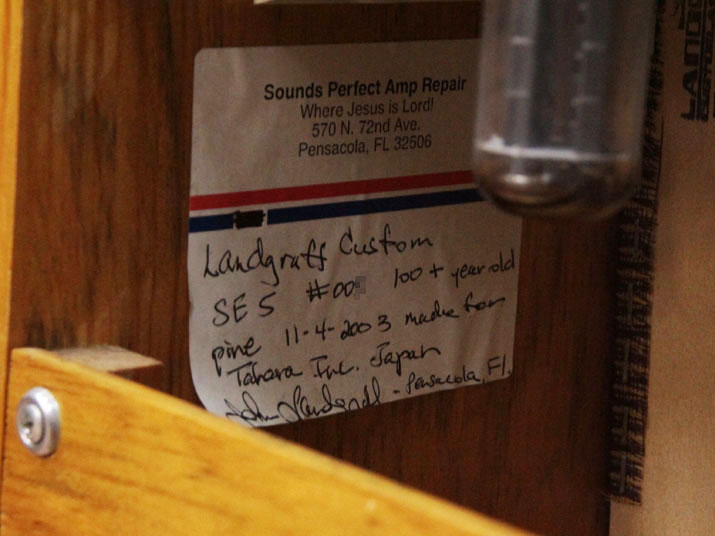 Sounds Perfect Amp Repair
Where Jesus is Lord!
570 N. 72nd Ave.
Pensacola, FL 32506
Landgraff Custom
SE 5 #00 100 + year old
pine 11-4-2003 made for
Tahara Inc. Japan
John - Pensacola, Fl.